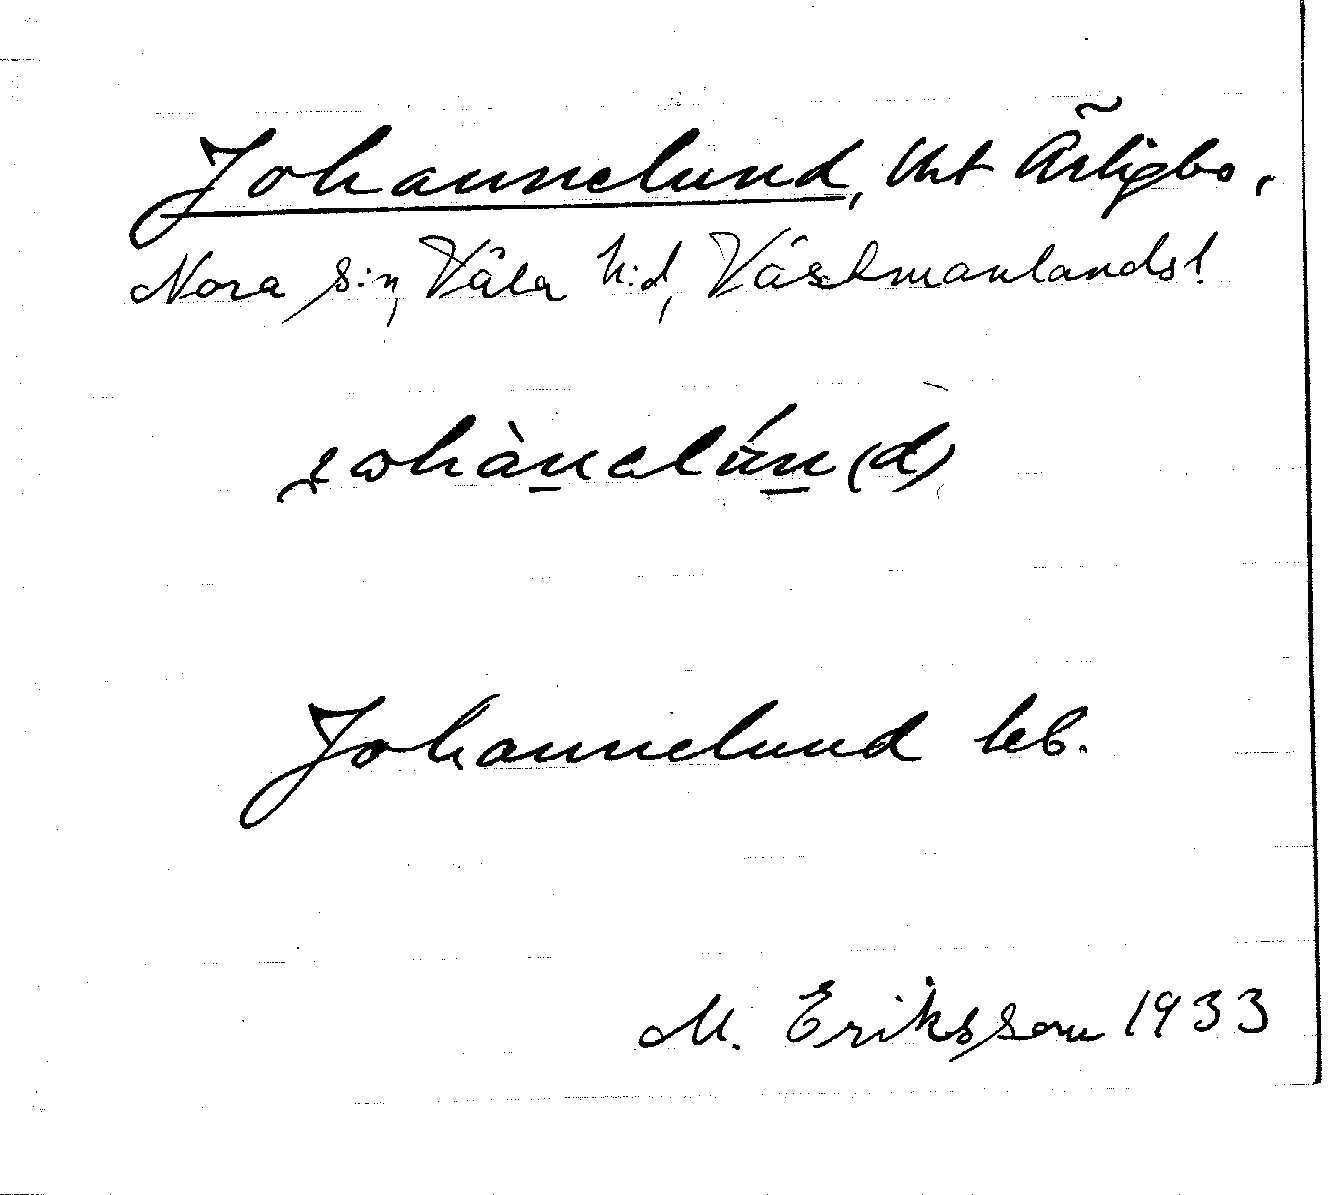 Johannelund, Uht Ärligbo,
Nora s:n, Våla h:d, Västmanlands l
johànelún(d)
Johannelund kb.
M. Eriksson 1933